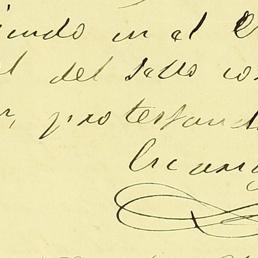 iendo en al
l del sello co
r, protestand